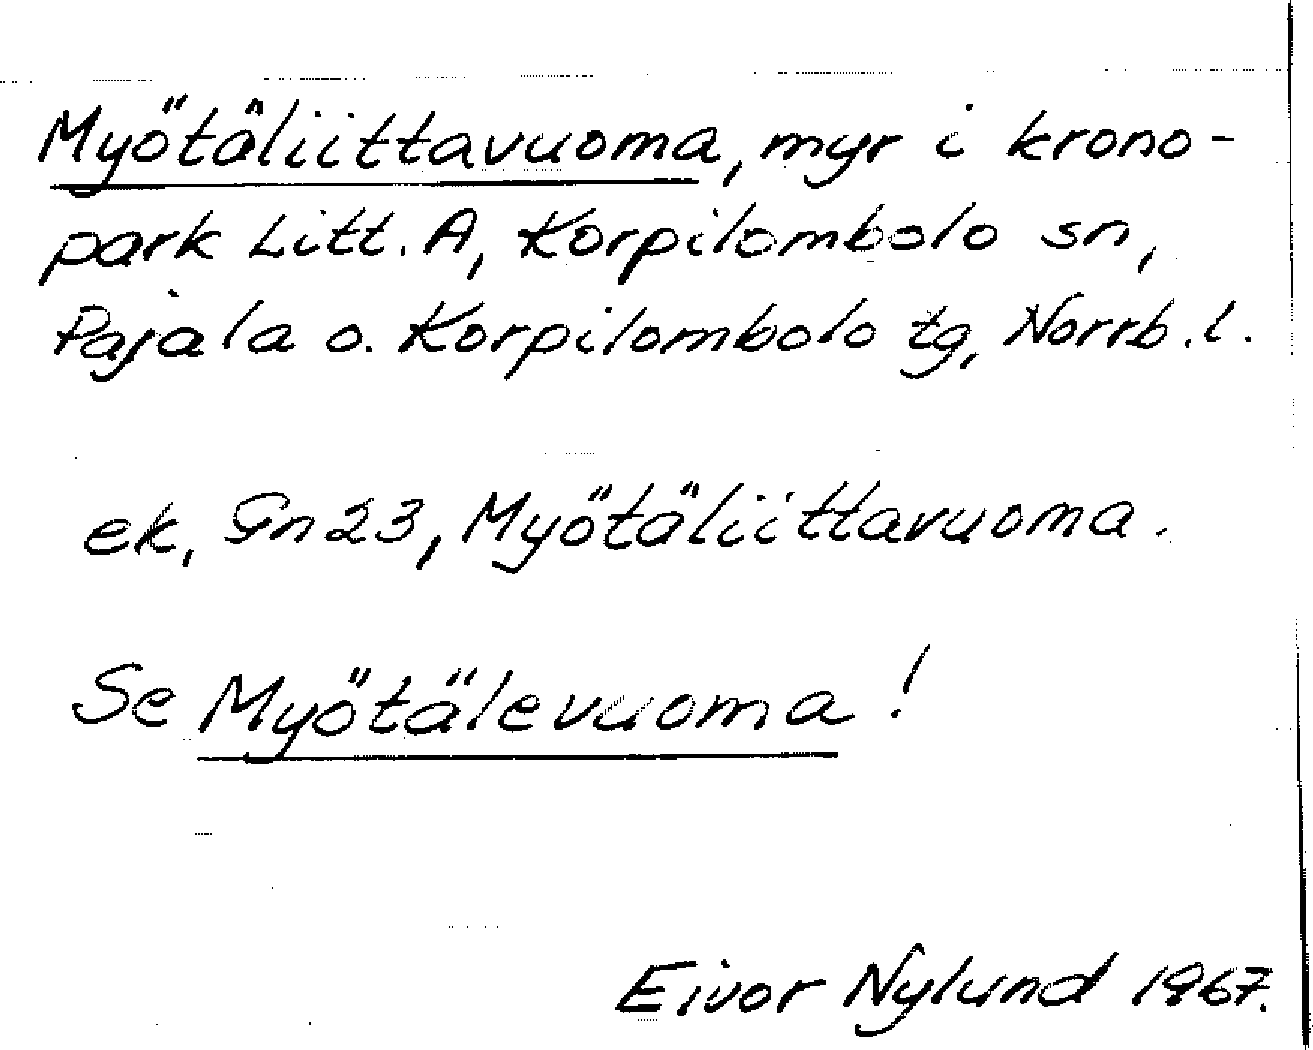 Myötäliittavuoma, myr i krono-
park Litt. A, Korpilombolo sn,
Pajala o. Korpilombolo tg, Norrb. l.
ek, Gn 23, Myötäliittavuoma.
Se Myötälevuoma!
Eivor Nylund 1967.